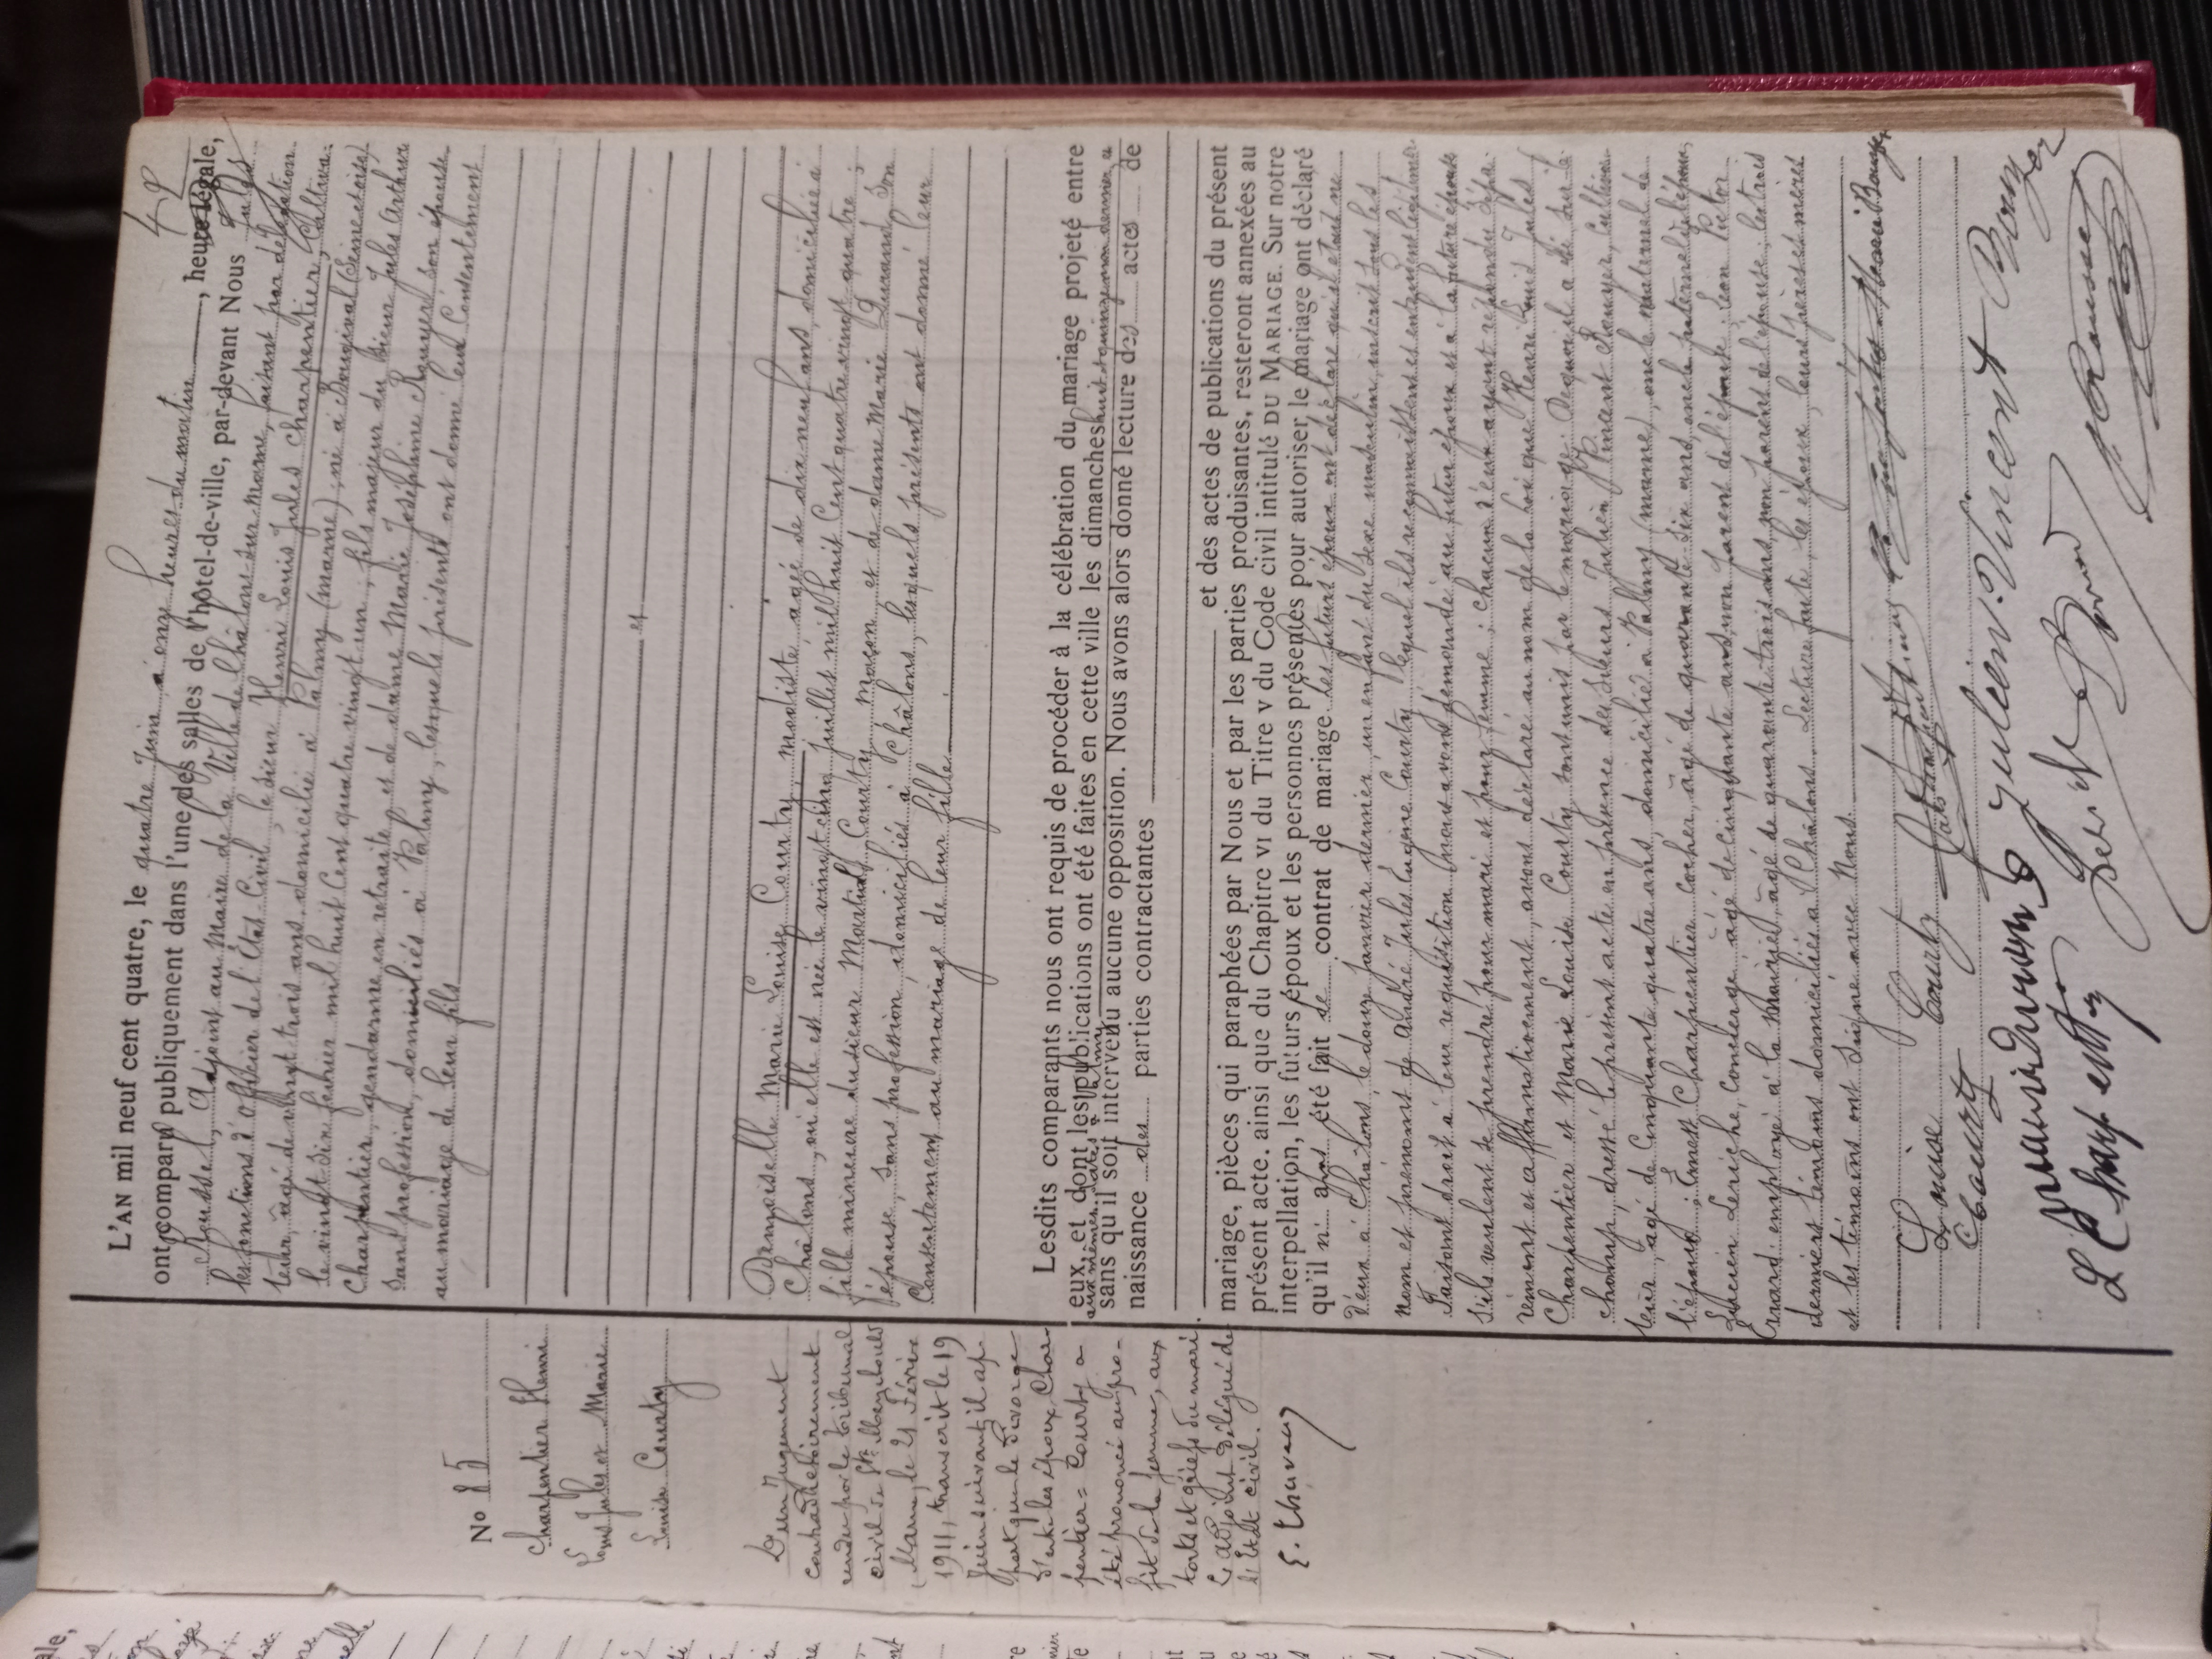 42
L'AN mil neuf cent quatre, le quatre Juin à onze heures du matin, heure légale,
ont comparu publiquement dans l'une des salles de l'hôtel-de-ville, par-devant Nous Jules
Rousset, Adjoint au Maire de la Ville de Châlons-sur-Marne, faisant par délégation
les fonctions d'Officier de l'État Civil, le sieur Henri Louis Jules Charpentier, Cultiva-
teur, âgé de vingt trois ans, domicilié à Palmy (Marne); né à Bougival (Seine et Oise)
le vingt six février mil huit cent quatre vingt un; fils majeur du sieur Jules Arthur
Charpentier, gendarme en retraite et de dame Marie Joséphine Rouyer son épouse
sans profession, domiciliés à Palmy, lesquels présents ont donné leur consentement
au mariage de leur fils
et
Demoiselle Marie Louise Courty, modiste, âgée de dix neuf ans, domiciliée à
Châlons, où elle est née le vingt cinq Juillet mil huit cent quatre vingt quatre;
fille mineure du sieur Martial Courty, maçon et de dame Marie Durand son
épouse, sans profession, domiciliés à Châlons, lesquels présents ont donné leur
consentement au mariage de leur fille
Lesdits comparants nous ont requis de procéder à la célébration du mariage projeté entre
eux, et dont les publications ont été faites en cette ville les dimanches
sans qu'il soit intervenu aucune opposition. Nous avons alors donné lecture des actes de
naissance des parties contractantes
et des actes de publications du présent
mariage, pièces qui paraphées par Nous et par les parties produisantes, resteront annexées au
présent acte, ainsi que du Chapitre VI du Titre V du Code civil intitulé DU MARIAGE. Sur notre
interpellation, les futurs époux et les personnes présentes pour autoriser le mariage ont déclaré
qu'il n' a pas été fait de contrat de mariage. Les futurs époux ont déclaré qu'il était né
d'eux à Châlons, le douze Janvier dernier, un enfant du sexe masculin, inscrit sous les
nom et prénoms de André Jules Eugène Courty lequel ils reconnaissent et entendent légitimer.
Faisant droit à leur réquisition nous avons demandé au futur époux et à la future épouse
s'ils veulent se prendre pour mari et pour femme; chacun d'eux ayant répondu sépa-
rément et affirmativement, avons déclaré au nom de la loi que Henri Louis Jules
Charpentier et Marie Louise Courty sont unis par le mariage. De quoi a été sur le
champ dressé le présent acte en présence des sieurs Julien Vincent Rouyer, Cultiva-
teur, âgé de cinquante quatre ans, domicilié à Palmy (Marne), oncle maternel de
l'époux; Ernest Charpentier, cocher, âgé de quarante six ans, oncle paternel de l'époux;
Lucien Leriche, concierge, âgé de cinquante ans, non parent de l'épouse; Léon Victor
employé à la âgé de quarante trois ans, non parent de l'épouse; les trois
derniers témoins domiciliés à Châlons. Lecture faite, les époux, leurs pères et mères
et les témoins ont signé avec Nous.
Louise Courty
Courty
Julien Vincent
Rousset
No 85
Charpentier Henri
Louis Jules et Marie
Louise Courty
D'un Jugement
contradictoirement
rendu par le tribunal
civil de Ste Menehould
(Marne, le 21 Février
1911, transcrit le 19
Juin suivant, il ap-
pert que le divorce
d'entre les époux Char-
pentier = Courty a
été prononcé au pro-
fit de la femme, aux
torts et griefs du mari.
Le adjoint délégué de
l'État civil.
E. Thuveny